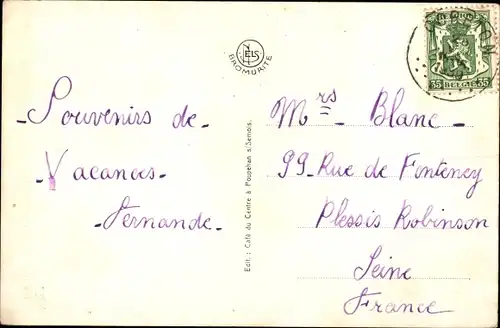 - Souvenirs de -
- Vacances -
- Fernande -
NELS
BROMURITE
Edit.: Café du Centre à Poupehan s/Semois.
BELGIE
35 BELGIE 35
Mrs - Blanc -
99 - Rue de Fontenay
Plessis Robinson
Seine
France